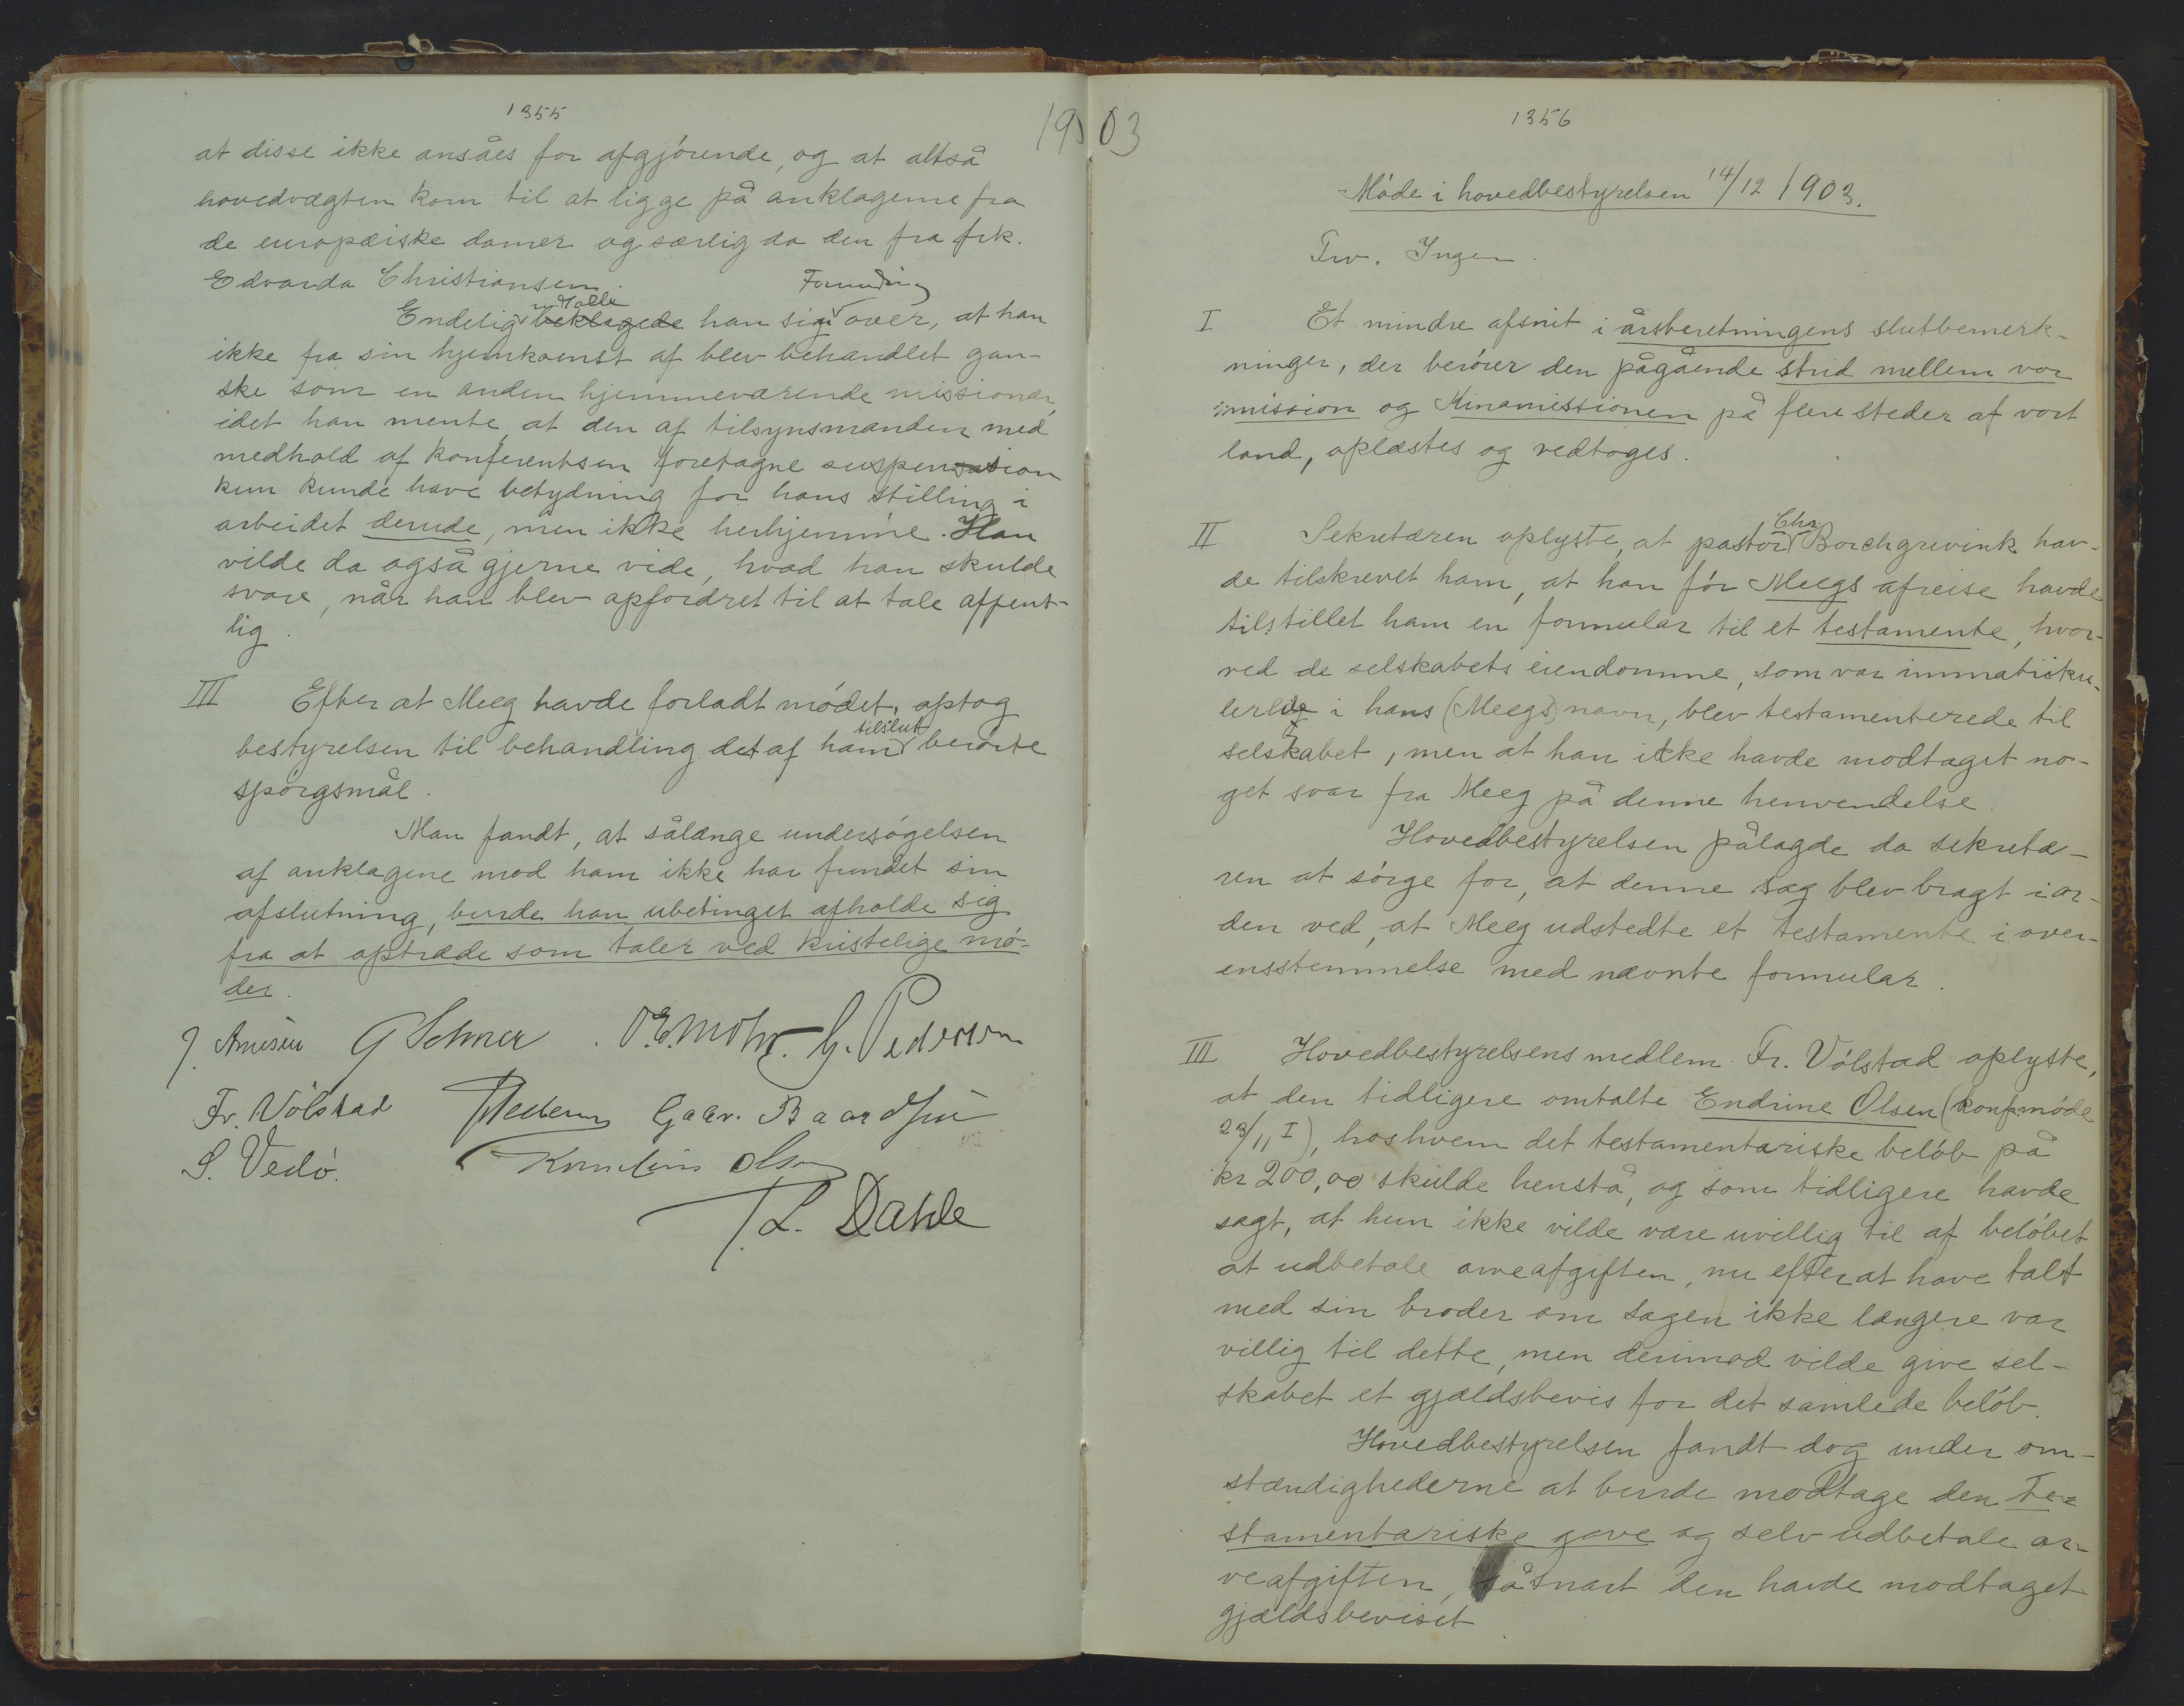 1355
1903
at disse ikke ansåes for afgjórende, og at altså
hovedvægten kom til at ligge på anklagerne fra
de europæiske damer og særlig da den fra frk.
Edvarda Christiansen.
Endelig udtalte beklagede han sin Forundring over, at han
ikke fra sin hjemkomst af blev behandlet gan-
ske som en anden hjemmeværende missionær,
idet han mente, at den af tilsynsmanden med
medhold af konferentsen foretagne suspension
kun kunde have betydning for hans stilling i
arbeidet derude, men ikke herhjemme. Han
vilde da også gjerne vide, hvad han skulde
svare, når han blev opfordret til at tale offent-
lig.
III Efter at Meeg havde forladt módet, optog
bestyrelsen til behandling det af ham tilslut berórte
spórgsmål.
Man fandt, at sålænge undersógelsen
af anklagene mod ham ikke har fundet sin
afslutning, burde han ubetinget afholde sig
fra at optræde som taler ved kristelige mó-
der.
J. Arnesen O.E. Mohr. G. Pedersen
Fr. Vólstad Gabr. Baardsen
S. Vedó. Kornelius Olsen
L. Dahle
1356
Móde i hovedbestyrelsen 14/12 1903.
Frv. Ingen.
I Et mindre afsnit i årsberetningens slutbemerk-
ninger, der berórer den pågående strid mellem vor
mission og Kinamissionen på flere steder af vort
land, oplæstes og vedtoges.
II Sekretæren oplyste, at pastor Chr. Borchgrevink hav-
de tilskrevet ham, at han fór Meegs afreise havde
tilstillet ham en formular til et testamente, hvor-
ved de selskabets eiendomme, som var immatriku-
lerede i hans (Meegs) navn, blev testamenterede til
selskabet, men at han ikke havde modtaget no-
get svar fra Meeg på denne henvendelse.
Hovedbestyrelsen pålagde da sekretæ-
ren at sórge for, at denne sag blev bragt i or-
den ved, at Meeg udstedte et testamente i over-
ensstemmelse med nævnte formular.
III Hovedbestyrelsens medlem Fr. Vólstad oplyste,
at den tidligere omtalte Endrine Olsen (konf. móde
23/11 I), hos hvem det testamentariske belób på
kr 200,00 skulde henstå, og som tidligere havde
sagt, at hun ikke vilde være uvillig til af belóbet
at udbetale arveafgiften, nu efter at have talt
med sin broder om sagen ikke længere var
villig til dette, men derimod vilde give sel-
skabet et gjældsbevis for det samlede belób.
Hovedbestyrelsen fandt dog under om-
stændighederne at burde modtage den te-
stamentariske gave og selv udbetale ar-
veafgiften, såsnart den havde modtaget
gjældsbeviset.